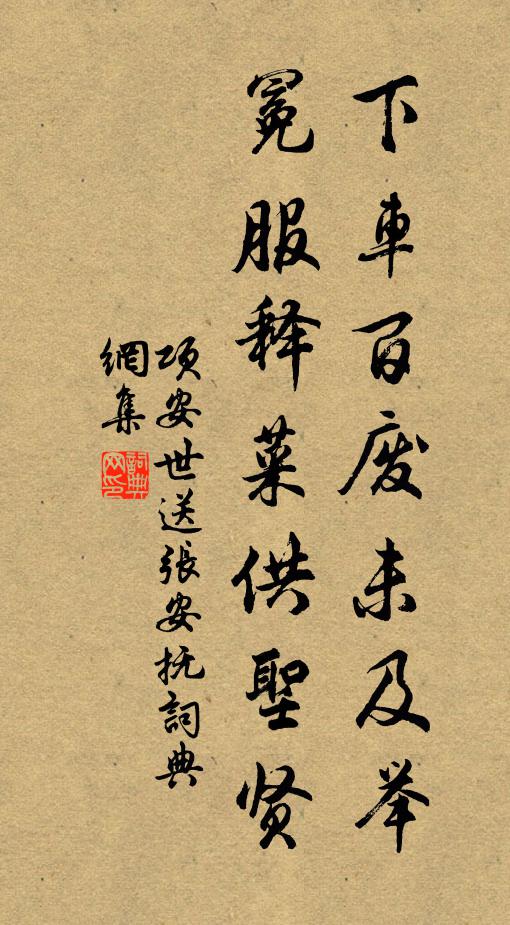 下車百废未及举
冕服释菜供聖贤
项安世送張安抚詞典
網集
詞典網印